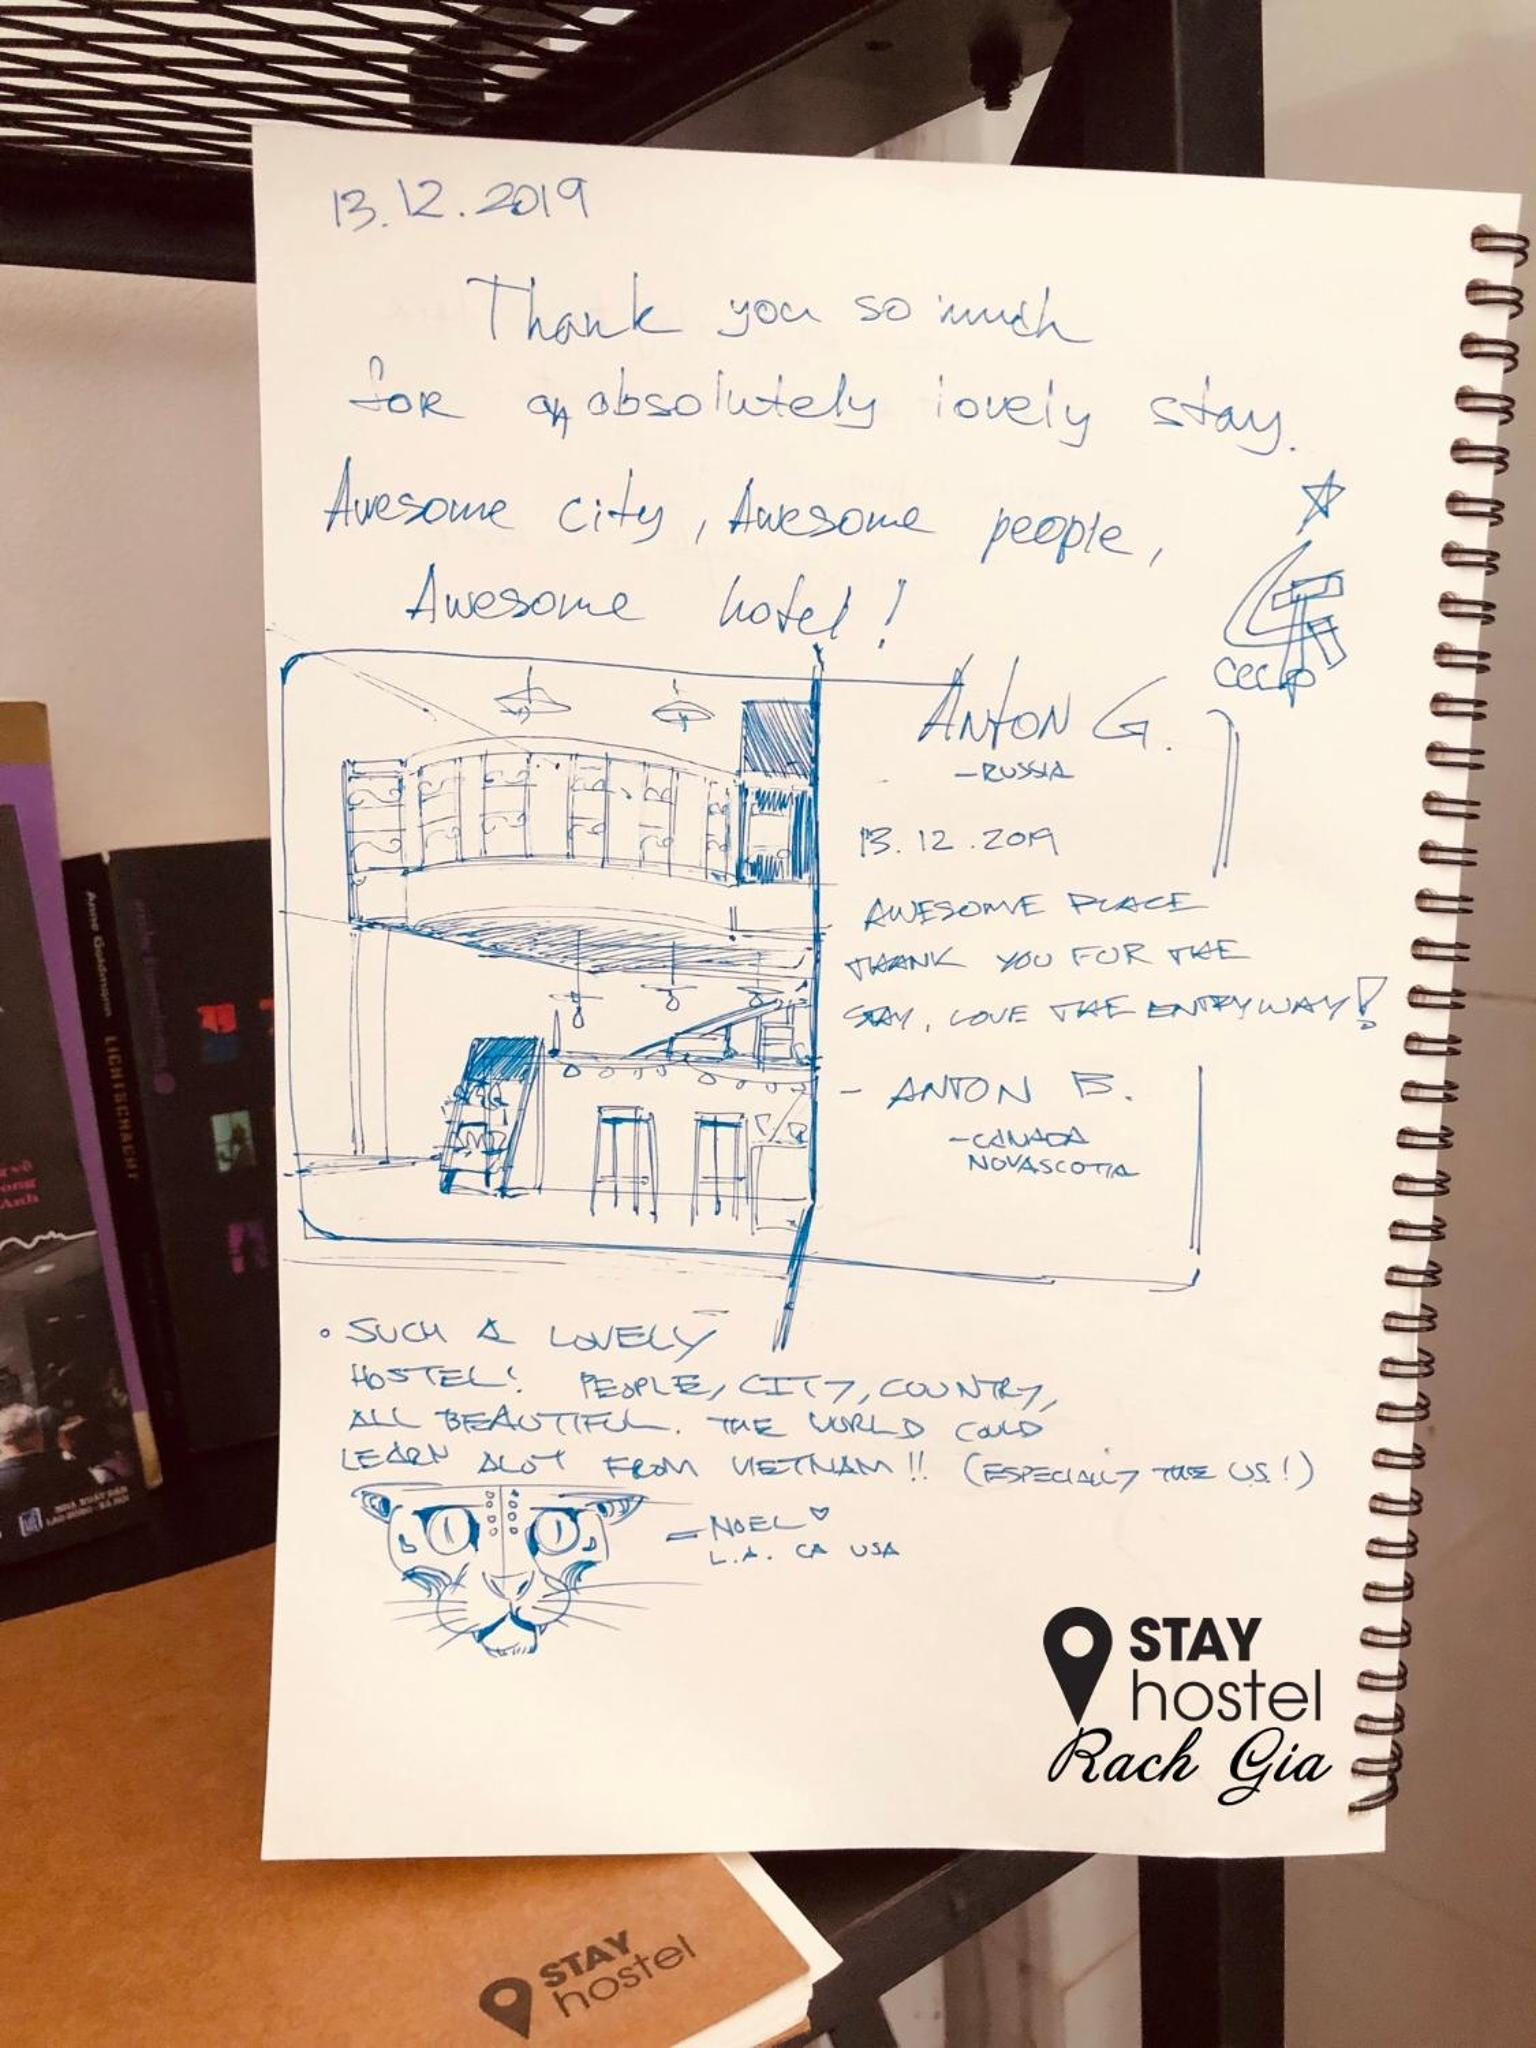 13.12.2019
Thank you so much
for an absolutely lovely stay.
Awesome city, Awesome people,
Awesome hotel!
СССР
ANTON G.
-RUSSIA
13.12.2019
AWESOME PLACE
THANK YOU FOR THE
STAY, LOVE THE ENTRYWAY!
- ANTON B.
-CANADA
NOVASCOTIA
• SUCH A LOVELY
HOSTEL! PEOPLE, CITY, COUNTRY,
ALL BEAUTIFUL. THE WORLD COULD
LEARN ALOT FROM VIETNAM!! (ESPECIALLY THE US!)
- NOEL ♡
L.A. CA USA
STAY
hostel
Rach Gia
STAY
hostel
Anne Goldmann LICHTSCHACHT
Anh
NHÀ XUẤT BẢN
LAO ĐỘNG - XÃ HỘI